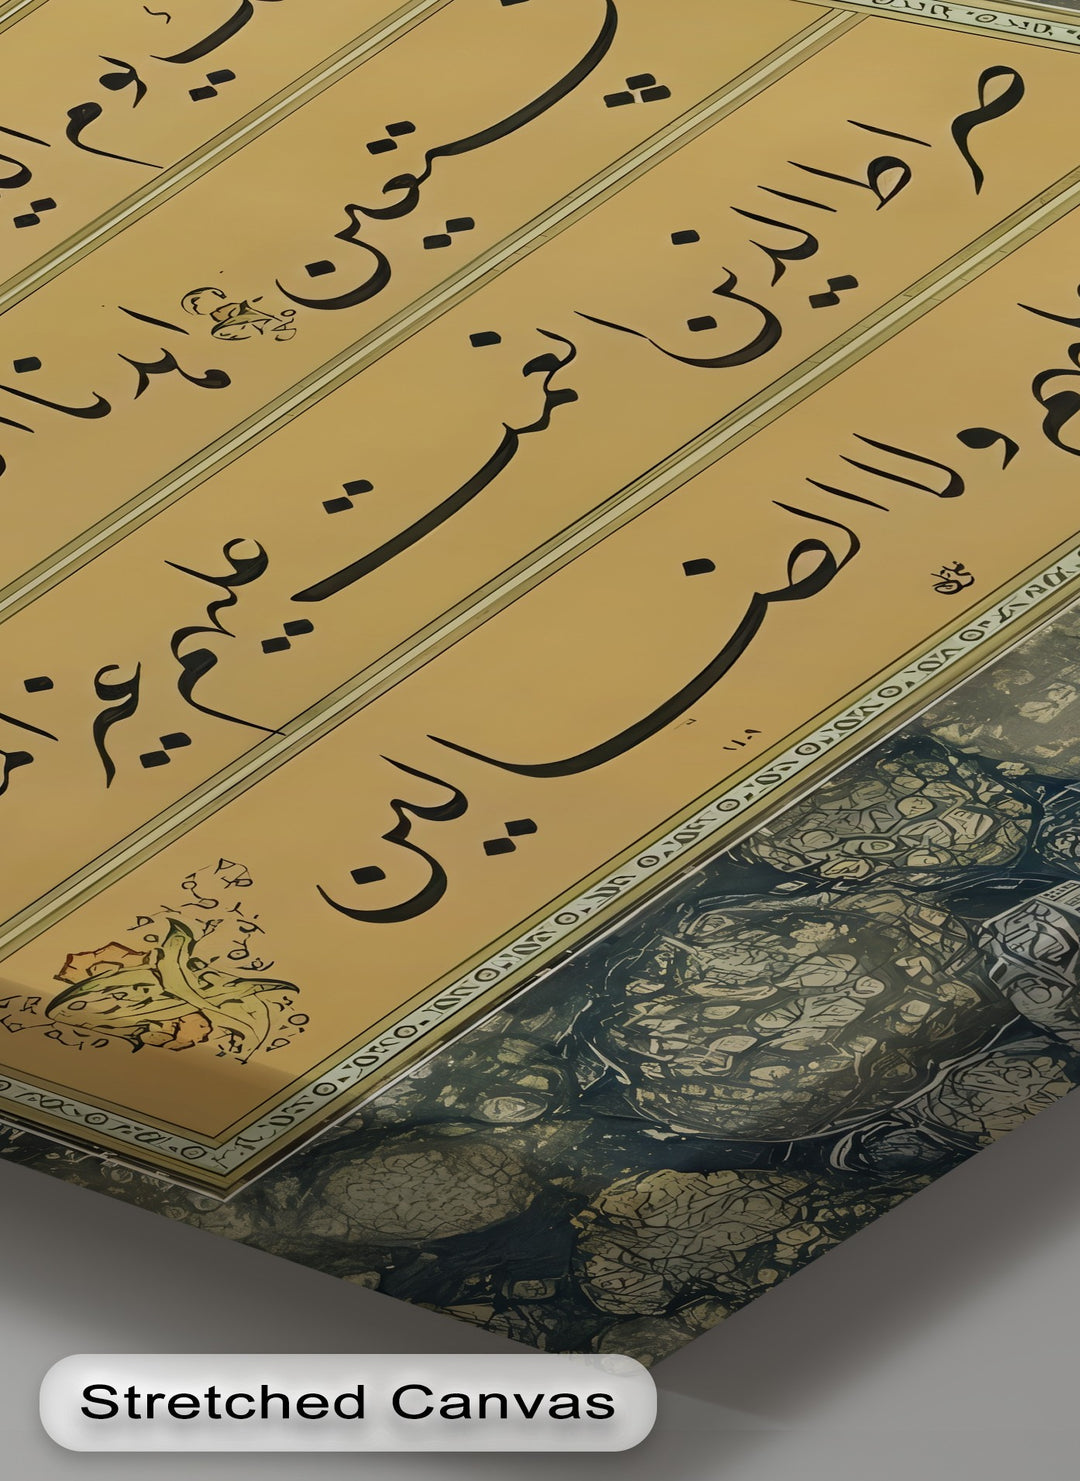 يوم
نستعين اهدنا
صراط الذين انعمت عليهم غير
ولا الضالين
Stretched Canvas